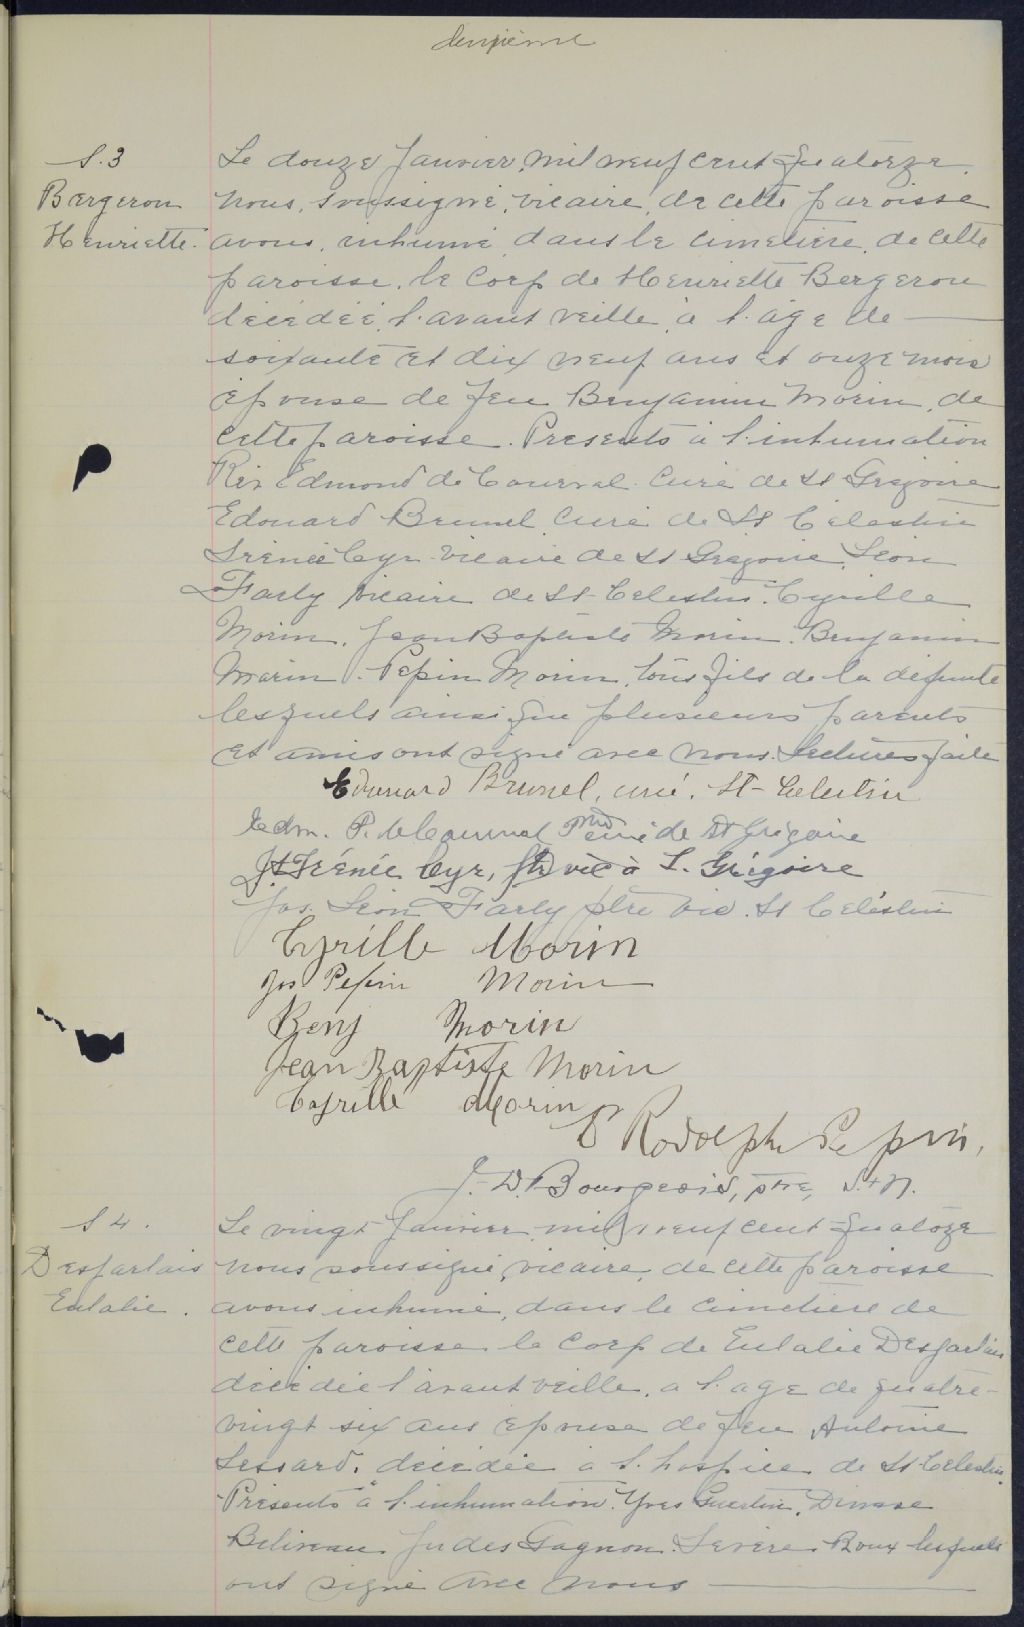 deuxième
S. 3
Bergeron
Henriette.
Le douze Janvier, mil neuf cent quatorze.
nous, soussigné, vicaire, de cette paroisse
avons, inhumé, dans le cimetière, de cette
paroisse, le corp de Henriette Bergeron
décédée, l'avant veille, à l'âge de
soixante et dix neuf ans et onze mois
épouse de feu Benjamin Morin, de
cette paroisse. Presents à l'inhumation
Rév Edmond de Courval curé de St Grégoire
Edouard Brunel curé de St Célestin
Irénée Cyr vicaire de St Grégoire, Léon
Farly vicaire de St-Celestin. Cyrille
Morin, Jean Baptiste Morin. Benjamin
Morin. Pepin Morin, tous fils de la défunte
lesquels ainsi que plusieurs parents
et amis ont signé avec nous. Lecture faite
Edouard Brunel, curé. St-Celestin
Edm. P. de Courval Ptre curé de St Grégoire
J. Irénée Cyr, ptre vic à S. Grégoire
Jos. Léon Farly ptre vic. St Celéstin
Cyrille Morin
Jos Pepin Morin
Benj Morin
Jean Baptiste Morin
Cyrille Morin
Dr Rodolphe Pepin,
J.-D. Bourgeois, ptre, S.+N.
S 4.
Desfarlais
Eulalie.
Le vingt Janvier mil neuf cent quatoze
nous soussigné, vicaire, de cette paroisse
avons inhumé, dans le cimetière de
cette paroisse le corp de Eulalie Desfarlais
décédée l'avant veille, a l'age de quatre-
vingt six ans épouse de feu Antoine
Lessard, décédée à l'hospice de St-Celestin.
Présents à l'inhumation. Yves Guertin,
Beliveau Judes Gagnon. Sévère Roux lesquels
ont signé avec nous